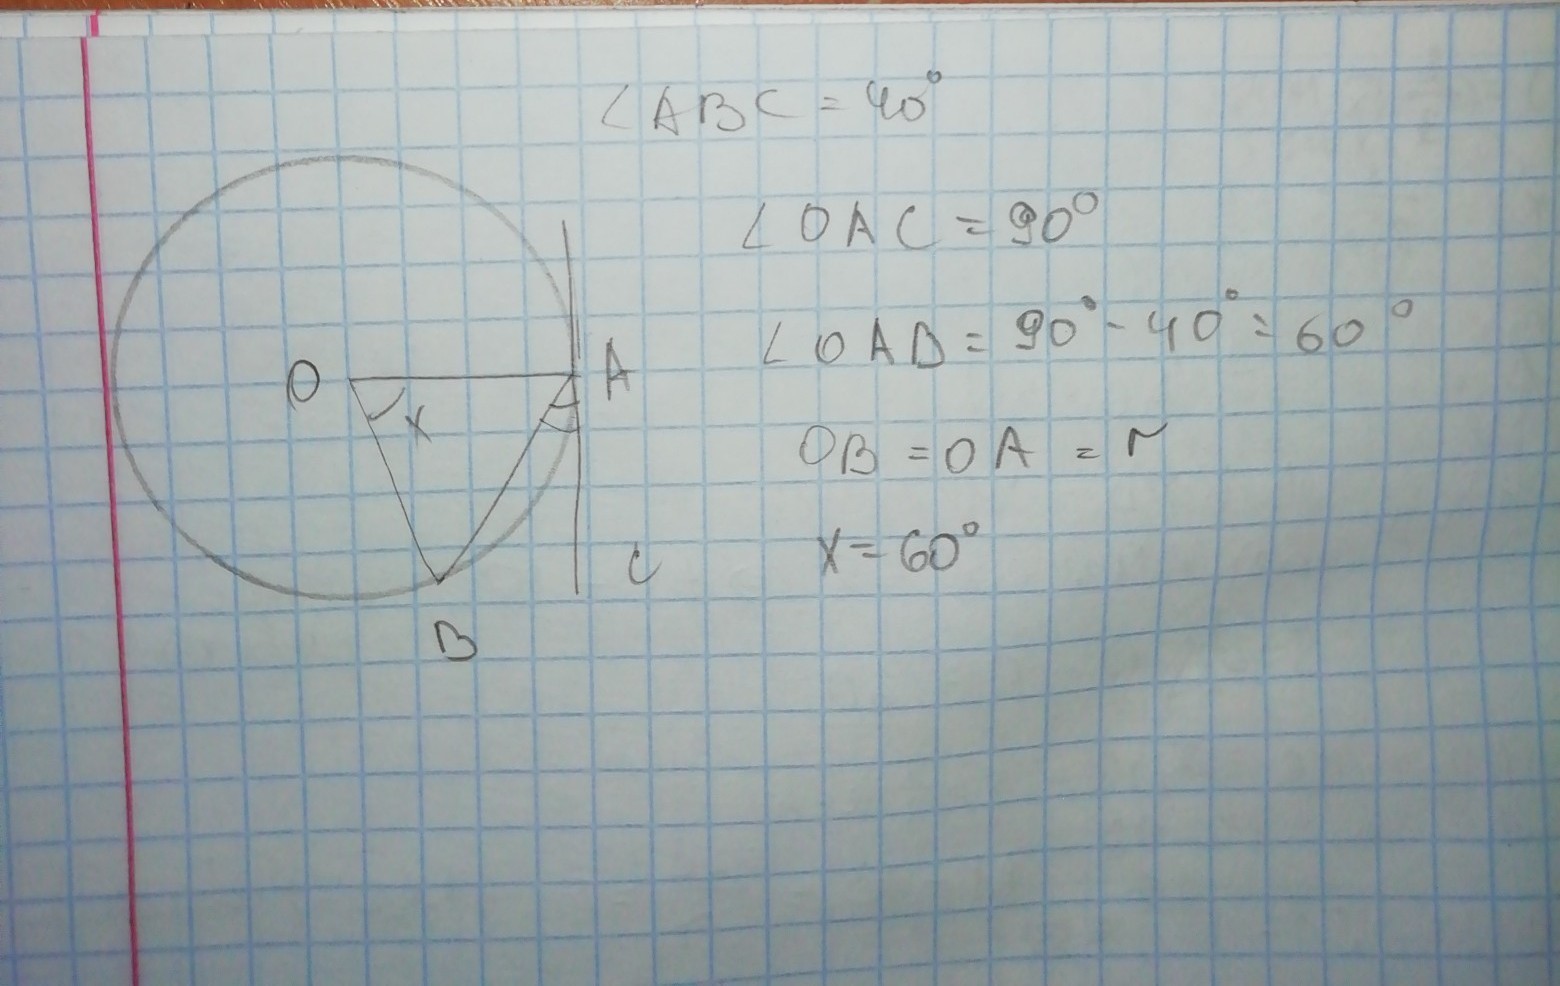 ∠ABC = 40°
∠OAC = 90°
∠OAB = 90° - 40° = 60°
O
A
x
OB = OA = r
x = 60°
C
B